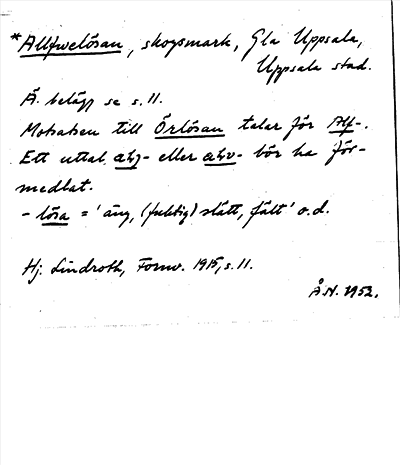 *Allfwelösan, skogsmark, Gla Uppsala,
Uppsala stad.
Ä. belägg se s. 11.
Motsatsen till Örlösan talar för Alf-.
Ett uttal alj- eller alv- bör ha för-
medlat.
- lösa = 'äng, (fuktig) slätt, fält' o.d.
Hj. Lindroth, Fornv. 1915, s. 11.
Å.N. 1952.